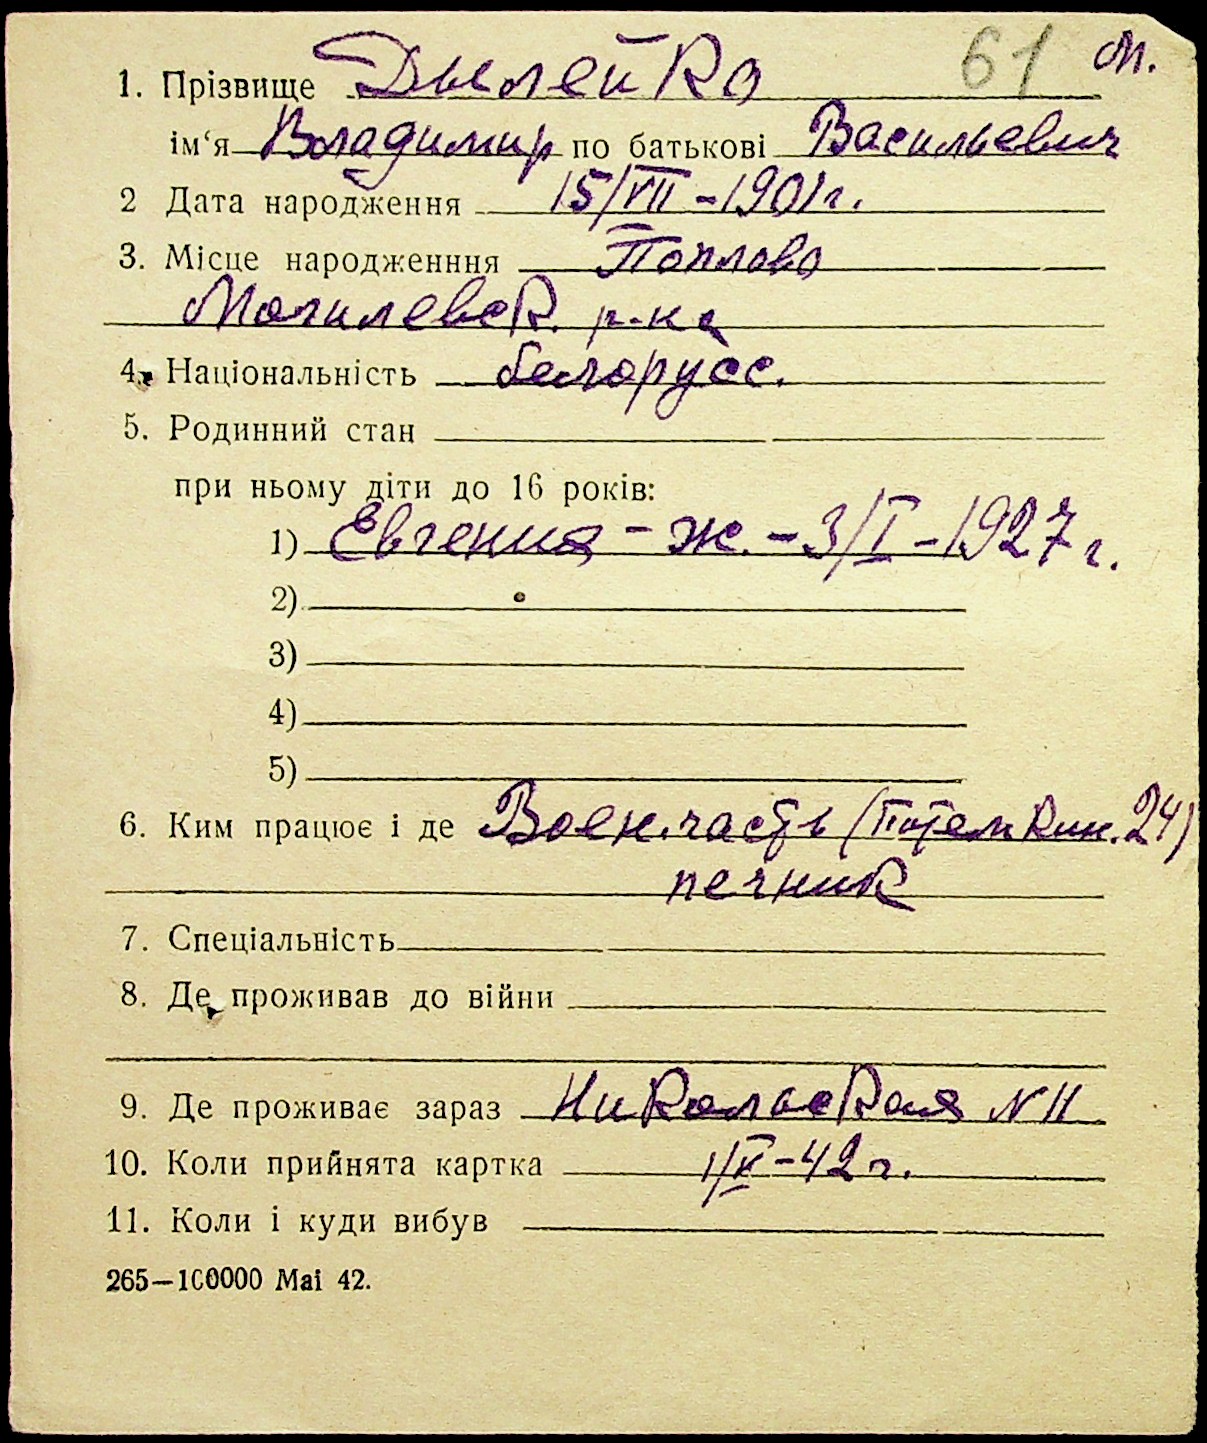 61 М.
1. Прізвище Дылейко
ім‘я Владимир по батькові Васильевич
2 Дата народження 15/VII – 1901 г.
3. Місце народженння Поплово
Могилевск. р-на
4. Національність белорусс.
5. Родинний стан
при ньому діти до 16 років:
1) Евгения – ж. – 3/I – 1927 г.
2)
3)
4)
5)
6. Ким працює і де Воен. часть (Потемкин. 24)
печник
7. Спеціальність
8. Де проживав до війни
9. Де проживає зараз Николаевская N 11
10. Коли прийнята картка 1/X – 42 г.
11. Коли і куди вибув
265—100000 Mai 42.